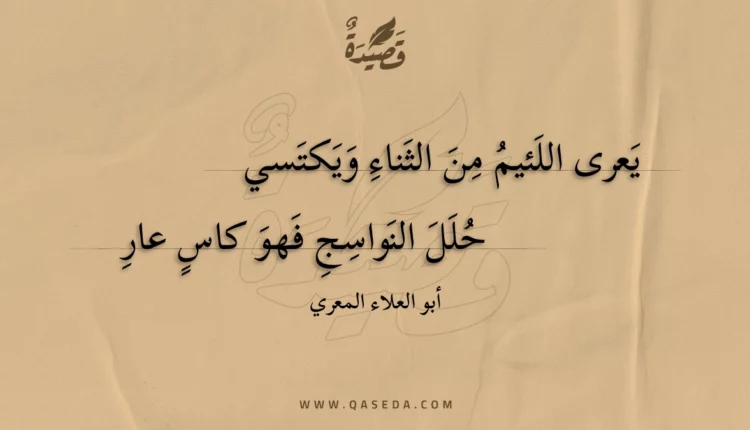 قَصِيْدَةٌ
يَعرى اللَئيمُ مِنَ الثَناءِ وَيَكتَسي
حُلَلَ النَواسِجِ فَهوَ كاسٍ عارِ
أبو العلاء المعري
WWW.QASEDA.COM